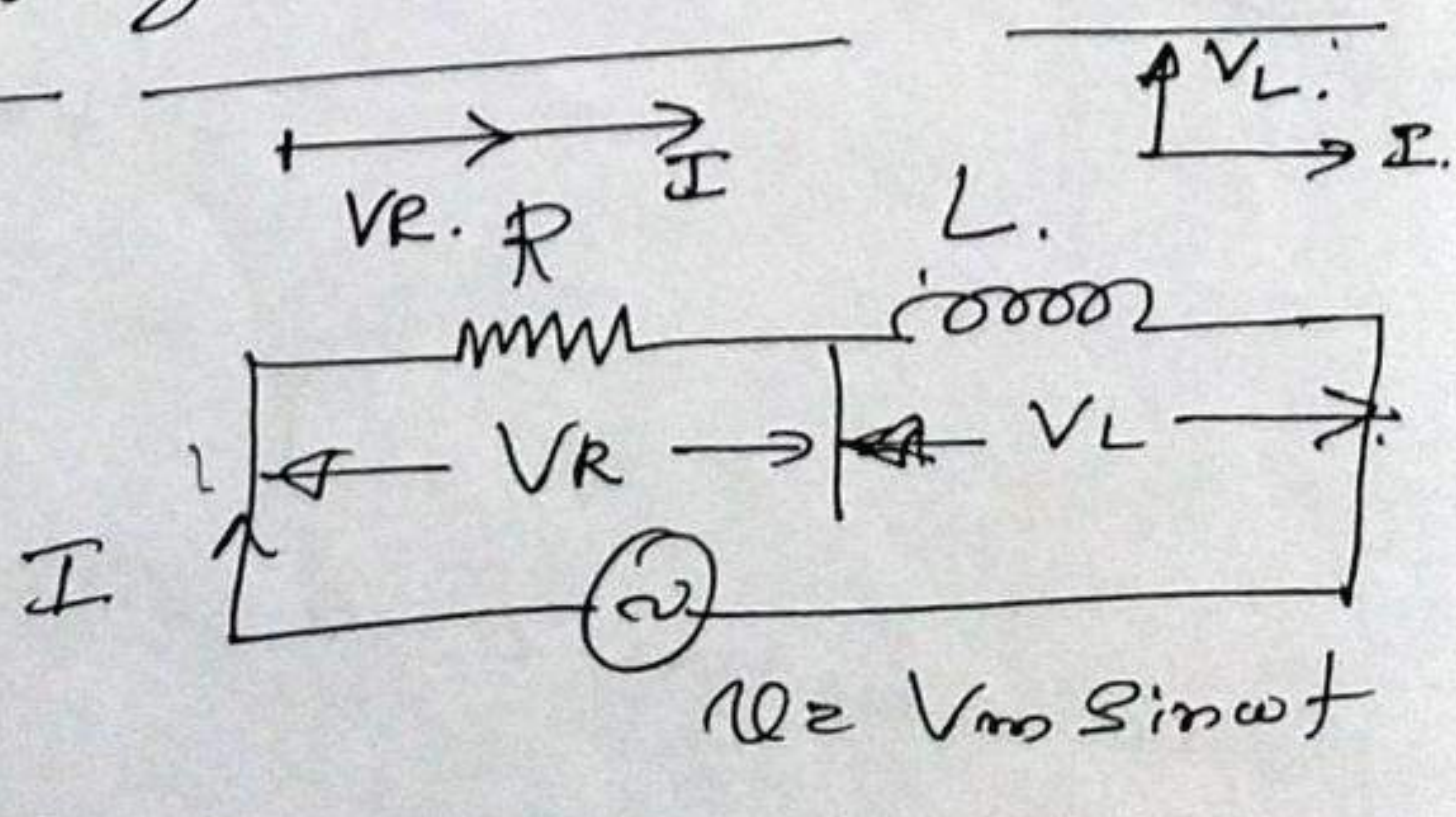 VL.
I.
I
VR. R
L.
VR
VL
I
v = Vm Sinωt